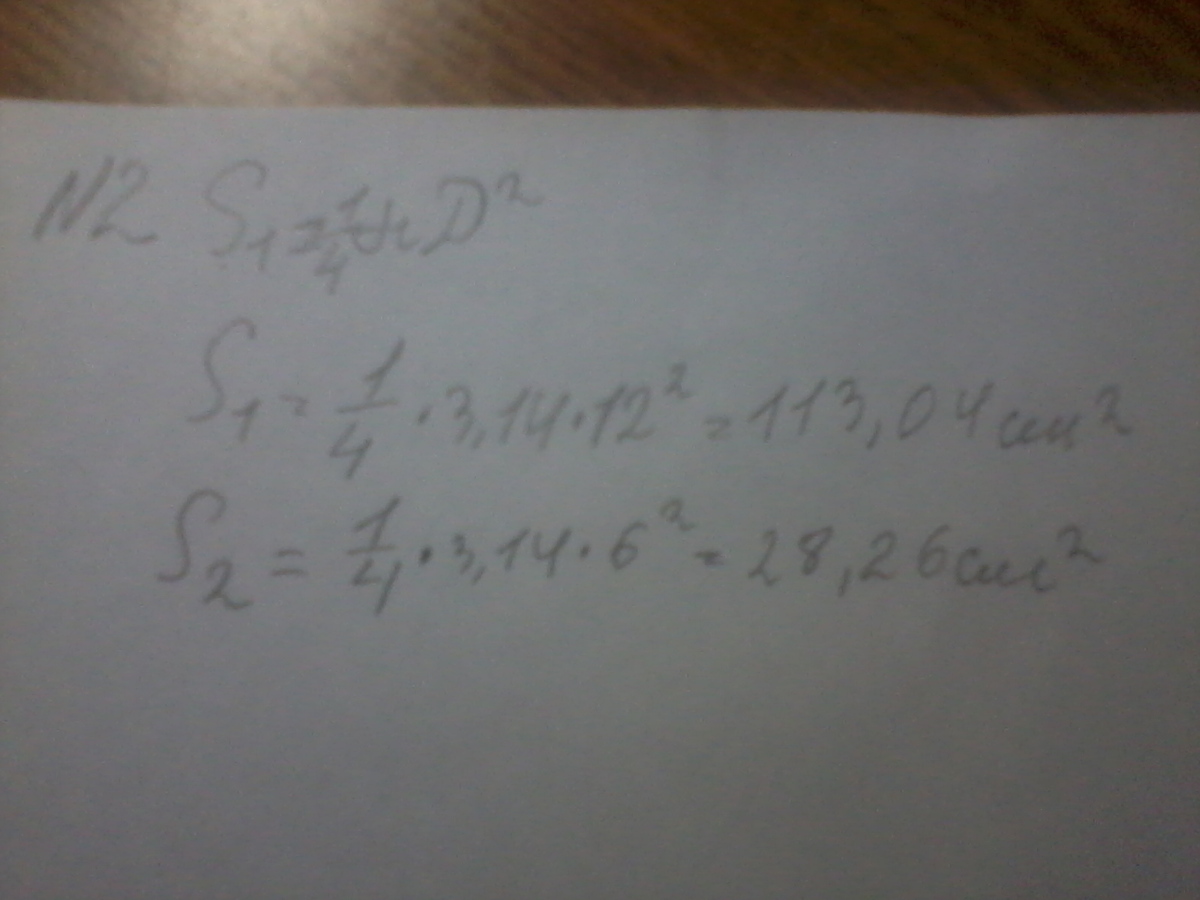 N2 S₁=1/4πD²
S₁=1/4·3,14·12²=113,04см²
S₂=1/4·3,14·6²=28,26см²